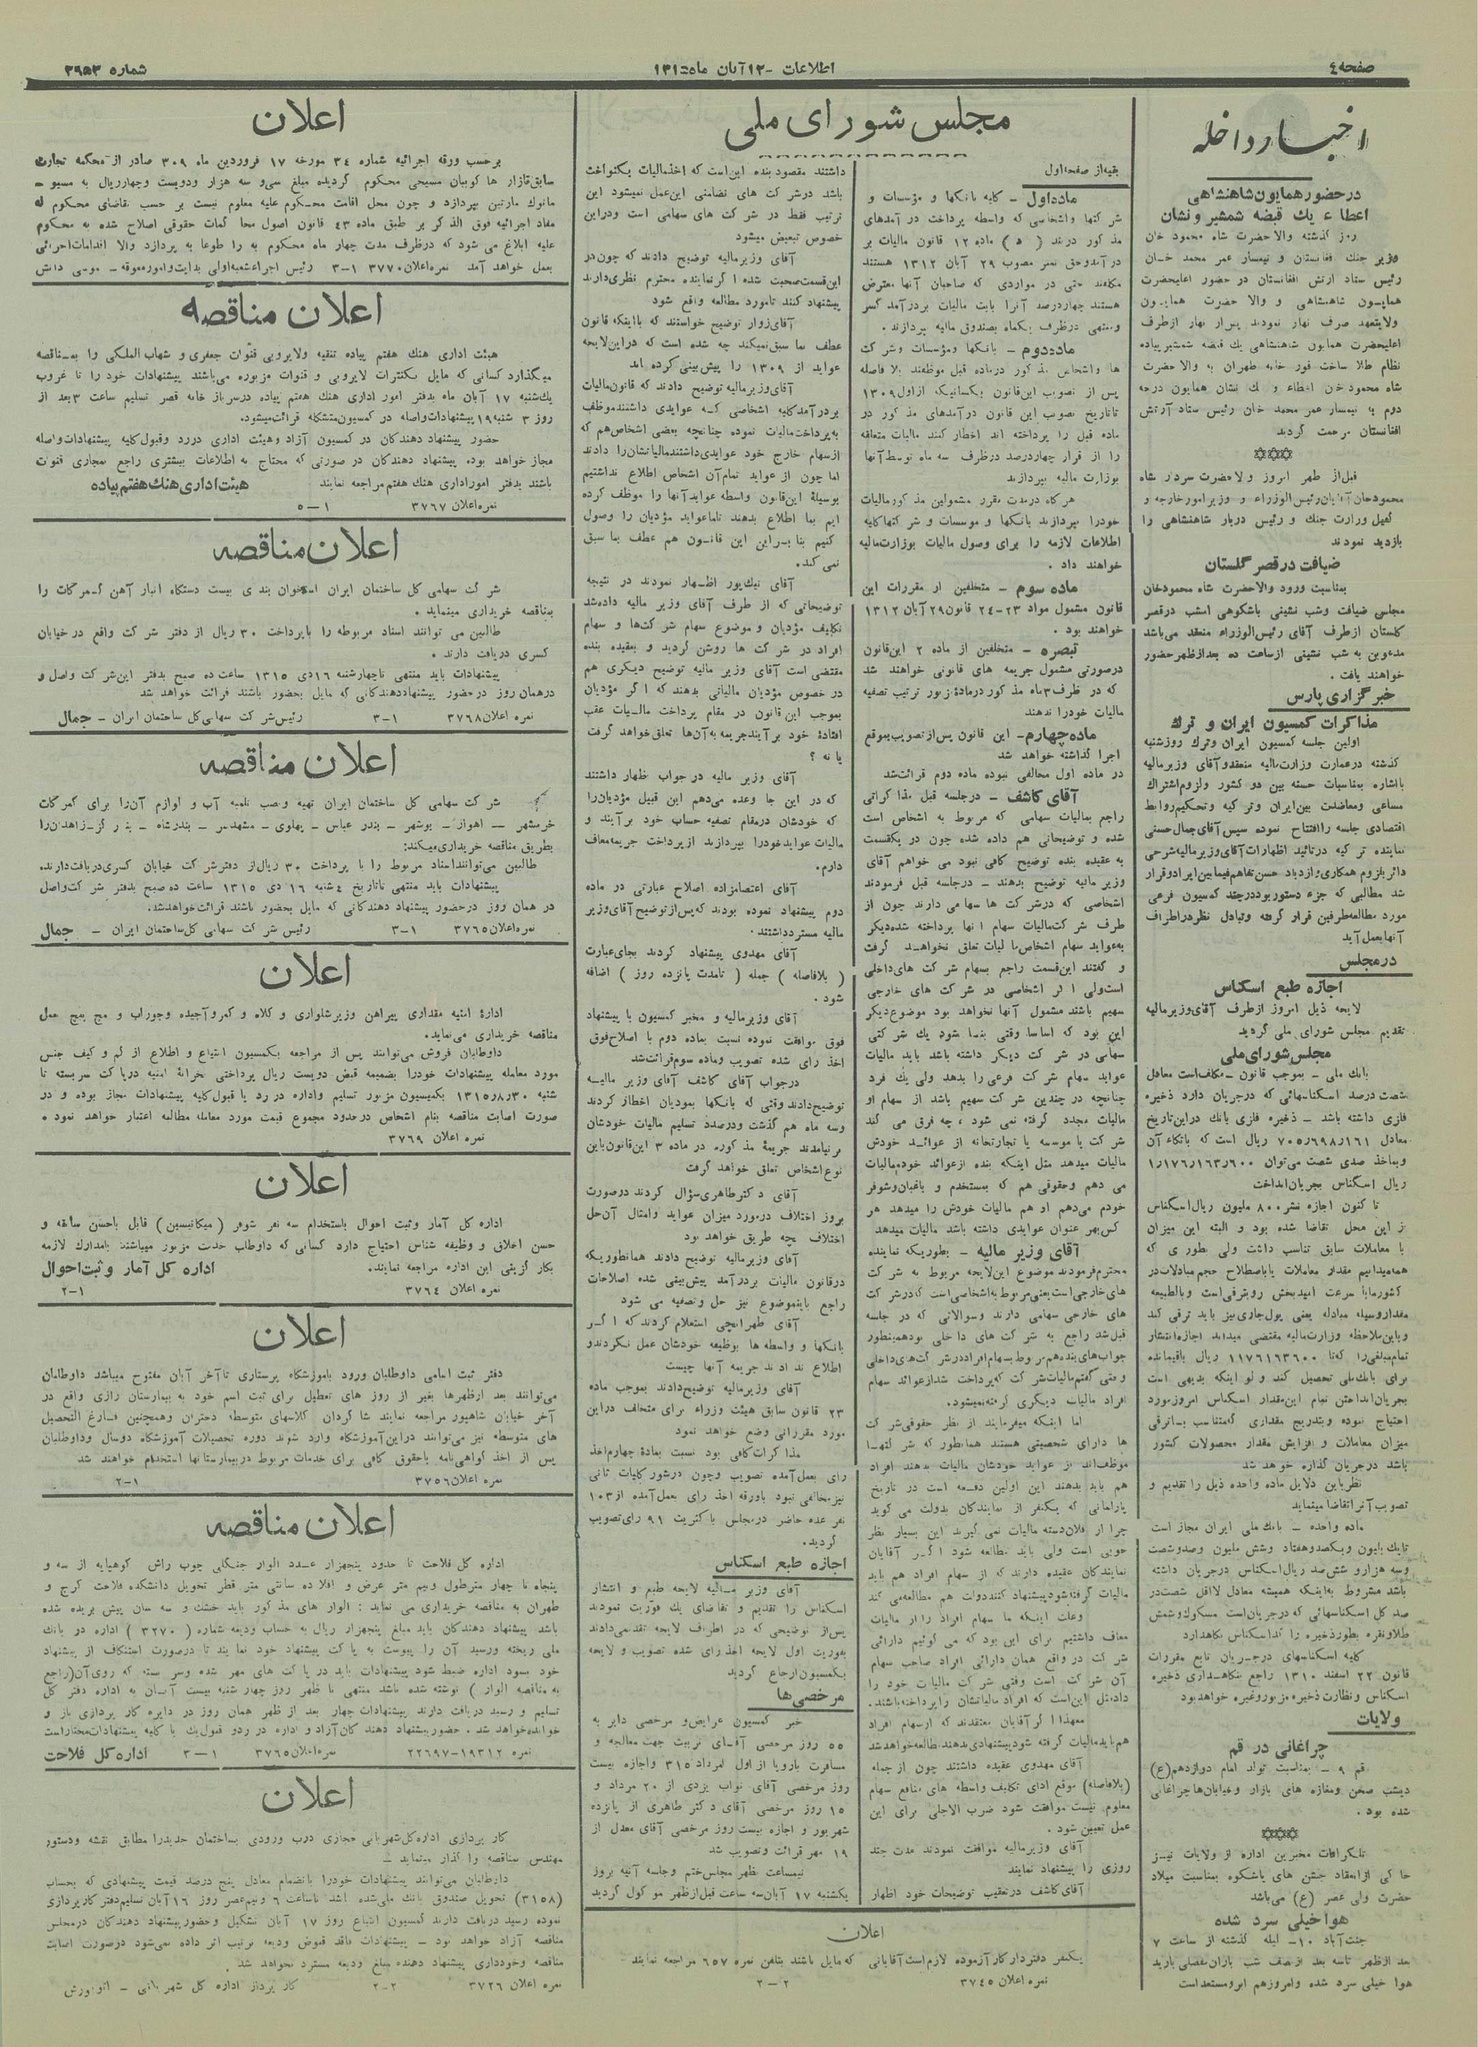 صفحه٤
اطلاعات -۱۲آبان ماه۱۳۱۵
شماره ۲۹۵۳
اخبار داخله
درحضور همایون شاهنشاهی
اعطاء یك قبضه شمشیر و نشان
روز گذشته والا حضرت شاه محمود خان
وزیر جنك افغانستان و تیمسار عمر محمد خان
رئیس ستاد ارتش افغانستان در حضور اعلیحضرت
همایون شاهنشاهی و والا حضرت همایون
ولایتعهد صرف نهار نمودند پس از نهار ازطرف
اعلیحضرت همایون شاهنشاهی یك قبضه شمشیر پیاده
نظام طلا ساخت قور خانه طهران به والا حضرت
شاه محمود خان اعطاء و یك نشان همایون درجه
دوم به تیمسار عمر محمد خان رئیس ستاد ارتش
افغانستان مرحمت گردید
قبل از ظهر امروز والاحضرت سردار شاه
محمودخان آقایان رئیس الوزراء و وزیر امورخارجه و
کفیل وزارت جنك و رئیس دربار شاهنشاهی را
بازدید نمودند
ضیافت درقصر گلستان
بمناسبت ورود والاحضرت شاه محمودخان
مجلس ضیافت وشب نشینی باشکوهی امشب درقصر
گلستان ازطرف آقای رئیس الوزراء منعقد می باشد
مدعوین به شب نشینی ازساعت ده بعدازظهر حضور
خواهند یافت .
خبرگزاری پارس
مذاکرات کمسیون ایران و ترك
اولین جلسه کمسیون ایران وترك روزشنبه
گذشته درعمارت وزارت مالیه منعقد و آقای وزیر مالیه
بااشاره بمناسبات حسنه بین دو کشور ولزوم اشتراك
مساعی ومعاضدت بین ایران وترکیه وتحکیم روابط
اقتصادی جلسه را افتتاح نموده سپس آقای جمال حسنی
نماینده ترکیه درتائید اظهارات آقای وزیر مالیه شرحی
شد مطالبی که جزء دستور بود درچند کمسیون فرعی
مورد مطالعه طرفین قرار گرفته وتبادل نظر دراطراف
آنها بعمل آید
درمجلس
اجازه طبع اسکناس
لایحه ذیل امروز ازطرف آقای وزیر مالیه
تقدیم مجلس شورای ملی گردید
مجلس شورای ملی
بانك ملی - بموجب قانون - مکلف است معادل
شصت درصد اسکناسهائی که درجریان دارد ذخیره
فلزی داشته باشد - ذخیره فلزی بانك دراین تاریخ
معادل ۷۰۵٫۶۹۸٫۱۶۱ ریال است که باتکاء آن
وبماخذ صدی شصت می توان ۱٫۱۷۶٫۱۶۳٫۶۰۰
ریال اسکناس بجریان انداخت
تا کنون اجازه نشر ۸۰۰ ملیون ریال اسکناس
از این محل تقاضا شده و البته این میزان
با معاملات سابق تناسب داشت ولی بطوری که
همه میدانیم مقدار معاملات یاباصطلاح حجم مبادلات در
کشورما با سرعت امیدبخش روبترقی است و بالطبیعه
مقدار وسیله مبادله یعنی پول جاری نیز باید ترقی کند
و باین ملاحظه وزارت مالیه مقتضی میداند اجازه انتشار
تمام مبلغی را که تا ۱۱۷۶۱۶۳۶۰۰ ریال باقیمانده
برای بانك ملی تحصیل کند و لو اینکه بدیهی است
بجریان انداختن تمام این مقدار اسکناس امروز مورد
احتیاج نبوده وبتدریج مقداری که متناسب با ترقی
میزان معاملات و افزایش مقدار محصولات کشور
باشد درجریان گذارده خواهد شد
نظر باین دلایل ماده واحده ذیل را تقدیم و
تصویب آنرا تقاضا مینماید
ماده واحده - بانك ملی ایران مجاز است
تایك بلیون ویکصدوهفتاد وشش ملیون وصدوشصت
وسه هزارو شش صد ریال اسکناس درجریان داشته
باشد مشروط به اینکه همیشه معادل لااقل شصت در
صد کل اسکناسهائی که درجریان است مسکوك وشمش
طلا ونقره بطور ذخیره را کد اسکناس نگاهدارد
کلیه اسکناسهای درجریان تابع مقررات
قانون ۲۲ اسفند ۱۳۱۰ راجع بنگاهداری ذخیره
اسکناس و نظارت ذخیره مزبور وغیره خواهد بود
ولایات
چراغانی در قم
قم ۹ - بمناسبت تولد امام دوازدهم(ع)
دیشب صحن ومغازه های بازار وخیابان ها چراغانی
شده بود .
تلگرافات مخبرین اداره از ولایات نیز
حاکی ازانعقاد جشن های باشکوه بمناسبت میلاد
حضرت ولی عصر (ع) می باشد
هوا خیلی سرد شده
بعد ازظهر تاسه بعد از نصف شب باران مفصلی بارید
هوا خیلی سرد شده وامروزهم ابر ومستعد است
مجلس شورای ملی
بقیه از صفحه اول
ماده اول - کلیه بانکها و مؤسسات و
شرکتها واشخاصی که واسطه پرداخت درآمدهای
مذکور دربند (۵) ماده ۱۲ قانون مالیات بر
درآمد وحق تمبر مصوب ۲۹ آبان ۱۳۱۲ هستند
مکلفند حتی در مواردی که صاحبان آنها معترض
هستند چهاردرصد آنرا بابت مالیات بردرآمد کسر
ومنتهی درظرف یکماه بصندوق مالیه بپردازند.
ماده دوم - بانکها ومؤسسات وشرکت
ها واشخاص مذکور درماده قبل موظفند بلا فاصله
پس از تصویب این قانون بکسانیکه ازاول ۱۳۰۹
تاتاریخ تصویب این قانون درآمدهای مذکور در
ماده قبل را پرداخته اند اخطار کنند مالیات متعلقه
را از قرار چهاردرصد درظرف سه ماه توسط آنها
بوزارت مالیه بپردازند
هرگاه درمدت مقرر مشمولین مذکور مالیات
خودرا نپردازند بانکها و موسسات و شرکتها کلیه
اطلاعات لازمه را برای وصول مالیات بوزارت مالیه
خواهند داد .
ماده سوم - متخلفین از مقررات این
قانون مشمول مواد ۲۳-۲٤ قانون ۲۹ آبان ۱۳۱۲
خواهند بود .
تبصره - متخلفین از ماده ۲ این قانون
درصورتی مشمول جریمه های قانونی خواهند شد
که در ظرف ۳ماه مذکور درماده مزبور ترتیب تصفیه
مالیات خودرا ندهند
ماده چهارم - این قانون پس از تصویب بموقع
اجرا گذاشته خواهد شد
در ماده اول مخالفی نبوده ماده دوم قرائت شد
آقای کاشف - درجلسه قبل مذاکراتی
راجع بمالیات سهامی که مربوط به اشخاص است
شده و توضیحاتی هم داده شده چون در یکقسمت
به عقیده بنده توضیح کافی نبود می خواهم آقای
وزیر مالیه توضیح بدهند - درجلسه قبل فرمودند
اشخاصی که درشرکت ها سهامی دارند چون از
طرف شرکت مالیات سهام آنها پرداخته شده دیگر
به عواید سهام اشخاص مالیات تعلق نخواهد گرفت
و گفتند این قسمت راجع بسهام شرکت های داخلی
است ولی اگر اشخاصی در شرکت های خارجی
سهیم باشند مشمول آنها نخواهد بود موضوع دیگر
این بود که اساسا وقتی بنا شود یك شرکتی
سهامی در شرکت دیگر داشته باشد باید مالیات
عواید سهام شرکت فرعی را بدهد ولی یك فرد
چنانچه در چندین شرکت سهیم باشد از سهام او
مالیات مجدد گرفته نمی شود، چه فرق می کند
شرکت یا موسسه یا تجارتخانه از عوائد خودش
مالیات میدهد مثل اینکه بنده از عوائد خودم مالیات
می دهم وحقوقی هم که بمستخدم و باغبان وشوفر
خودم می دهم او هم مالیات خودش را میدهد هر
کس بهر عنوان عوایدی داشته باشد مالیات میدهد
آقای وزیر مالیه - بطوریکه نماینده
محترم فرمودند موضوع این لایحه مربوط به شرکت
های خارجی است یعنی مربوط به اشخاصی است که درشرکت
های خارجی سهامی دارند وسوالاتی که در جلسه
قبل شد راجع به شرکت های داخلی بود همینطور
جوابهای بنده هم مربوط بسهام افراد درشرکت های داخلی
وقتی گفتم مالیات شرکت که پرداخت شد از عواید سهام
افراد مالیات دیگری گرفته نمیشود.
اما اینکه میفرمایند از نظر حقوقی شرکت
ها دارای شخصیتی هستند همانطور که شرکتها
موظف اند از عواید خودشان مالیات بدهند افراد
هم باید بدهند این اولین دفعه است در تاریخ
پارلمانی که یکنفر از نمایندگان بدولت می گوید
چرا از فلان دسته مالیات نمی گیرید این بسیار نظر
خوبی است ولی باید مطالعه شود اگر آقایان
نمایندگان عقیده دارند که از سهام افراد هم باید
مالیات گرفته شود پیشنهاد کنند دولت هم مطالعه می کند
وعلت اینکه ما سهام افراد را از مالیات
معاف داشتیم برای این بود که می گوئیم دارائی
شرکت در واقع همان دارائی افراد صاحب سهام
آن شرکت است وقتی شرکت مالیات خود را
داد مثل این است که افراد مالیاتشان را پرداخته باشند.
معهذا اگر آقایان معتقدند که ازسهام افراد
هم باید مالیات گرفته شود پیشنهادی بدهند مطالعه خواهد شد
آقای مهدوی عقیده داشتند چون از جمله
(بلافاصله) موقع ادای تکلیف واسطه های منافع سهام
معلوم نیست موافقت شود ضرب الاجلی برای این
عمل تعیین شود .
آقای وزیر مالیه موافقت نمودند مدت چند
روزی را پیشنهاد نمایند
آقای کاشف درتعقیب توضیحات خود اظهار
داشتند مقصود بنده این است که اخذ مالیات یکنواخت
باشد درشرکت های تضامنی این عمل نمیشود این
ترتیب فقط در شرکت های سهامی است ودراین
خصوص تبعیض میشود
آقای وزیر مالیه توضیح دادند که چون در
این قسمت صحبت شده اگر نماینده محترم نظری دارند
پیشنهاد کنند تامورد مطالعه واقع شود
آقای زوار توضیح خواستند که با اینکه قانون
عطف بما سبق نمیکند چه شده است که دراین لایحه
عواید از ۱۳۰۹ را پیش بینی کرده اند
آقای وزیر مالیه توضیح دادند که قانون مالیات
بردرآمد کلیه اشخاصی که عوایدی داشتند موظف
به پرداخت مالیات نموده چنانچه بعضی اشخاص هم که
ازسهام خارج خود عوایدی داشتند مالیاتشان را دادند
اما چون از عواید تمام آن اشخاص اطلاع نداشتیم
بوسیله این قانون واسطه عواید آنها را موظف کرده
ایم بما اطلاع بدهند تاما عواید مؤدیان را وصول
کنیم بنابراین این قانون هم عطف بما سبق
نمی کند.
آقای نیك پور اظهار نمودند در نتیجه
توضیحاتی که از طرف آقای وزیر مالیه داده شد
تکلیف مؤدیان و موضوع سهام شرکت ها و سهام
افراد در شرکت ها روشن گردید و بعقیده بنده
مقتضی است آقای وزیر مالیه توضیح دیگری هم
در خصوص مؤدیان مالیاتی بدهند که اگر مؤدیان
بموجب این قانون در مقام پرداخت مالیات عقب
افتاده خود برآیند جریمه به آن ها تعلق خواهد گرفت
یا نه ؟
آقای وزیر مالیه در جواب اظهار داشتند
که در این جا وعده می دهم این قبیل مؤدیان را
که خودشان درمقام تصفیه حساب خود برآیند و
مالیات عواید خودرا بپردازند از پرداخت جریمه معاف
دارم.
آقای اعتصام زاده اصلاح عبارتی در ماده
دوم پیشنهاد نموده بودند که پس از توضیح آقای وزیر
مالیه مسترد داشتند.
آقای مهدوی پیشنهاد کردند بجای عبارت
( بلافاصله ) جمله ( تامدت پانزده روز ) اضافه
شود .
آقای وزیر مالیه و مخبر کمسیون با پیشنهاد
فوق موافقت نموده نسبت بماده دوم با اصلاح فوق
اخذ رای شده تصویب وماده سوم قرائت شد
درجواب آقای کاشف آقای وزیر مالیه
توضیح دادند وقتی که بانکها بمودیان اخطار کردند
وسه ماه هم گذشت ودرصدد تسلیم مالیات خودشان
برنیامدند جریمهٔ مذکوره در ماده ۳ این قانون باین
نوع اشخاص تعلق خواهد گرفت
آقای دکتر طاهری سؤال کردند درصورت
بروز اختلاف درمورد میزان عواید وامثال آن حل
اختلاف بچه طریق خواهد بود
آقای وزیر مالیه توضیح دادند همانطوریکه
درقانون مالیات بردرآمد پیش بینی شده اصلاحات
راجع باینموضوع نیز حل وتصفیه می شود
آقای طهرانچی استعلام کردند که اگر
بانکها و واسطه ها بوظیفه خودشان عمل نکردند و
اطلاع ندادند جریمه آنها چیست
آقای وزیر مالیه توضیح دادند بموجب ماده
۲۳ قانون سابق هیئت وزراء برای متخلف دراین
مورد مقرراتی وضع خواهد نمود
مذاکرات کافی بود نسبت بمادهٔ چهارم اخذ
رای بعمل آمده تصویب وچون درشور کلیات ثانی
نیز مخالفی نبود باورقه اخذ رای بعمل آمده از ۱۰۳
نفر عده حاضر درمجلس باکثریت ۹۱ رای تصویب
گردید.
اجازه طبع اسکناس
آقای وزیر مالیه لایحه طبع و انتشار
اسکناس را تقدیم و تقاضای یك فوریت نمودند
پس از توضیحی که در اطراف لایحه تقدیمی دادند
بفوریت اول لایحه اخذ رای شده تصویب و لایحه
بکمسیون ارجاع گردید
مرخصی ها
خبر کمسیون عرایض و مرخصی دایر به
۵۵ روز مرخصی آقای تربیت جهت معالجه و
مسافرت باروپا از اول امرداد ۳۱۵ واجازه بیست
روز مرخصی آقای نواب یزدی از ۲۰ مرداد و
۱۵ روز مرخصی آقای دکتر طاهری از پانزده
شهریور و اجازه بیست روز مرخصی آقای معدل از
۱۹ مهر قرائت وتصویب شد
نیمساعت بظهر مجلس ختم وجلسه آتیه بروز
یکشنبه ۱۷ آبان سه ساعت قبل ازظهر موکول گردید
اعلان
یکنفر دفتردار کارآزموده لازم است آقایانی که مایل باشند بتلفن نمره ۶۵۷ مراجعه نمایند
نمره اعلان ۳۷٤۵
۲-۲
اعلان
برحسب ورقه اجرائیه شماره ۳٤ مورخه ۱۷ فروردین ماه ۳۰۹ صادر از محکمه تجارت
سابق قازار ها کوپیان مسیحی محکوم گردیده مبلغ سی و سه هزار ودویست وچهارریال به مسیو
مانوك مارتین بپردازد و چون محل اقامت محکوم علیه معلوم نیست بر حسب تقاضای محکوم له
مفاد اجرائیه فوق الذکر بر طبق ماده ٤۳ قانون اصول محاکمات حقوقی اصلاح شده به محکوم
علیه ابلاغ می شود که درظرف مدت چهار ماه محکوم به را طوعا به پردازد والا اقدامات اجرائی
بعمل خواهد آمد نمره اعلان ۳۷۷۰ ۱-۳ رئیس اجراء شعبه اولی بدایت وامور معوقه - موسی دانش
اعلان مناقصه
هیئت اداری هنك هفتم پیاده تنقیه ولایروبی قنوات جعفری و شهاب الملکی را بمناقصه
میگذارد کسانی که مایل بکنترات لایروبی و قنوات مزبوره می باشند پیشنهادات خود را تا غروب
یك شنبه ۱۷ آبان ماه بدفتر امور اداری هنك هفتم پیاده درسرباز خانه قصر تسلیم ساعت ۳ بعد از
روز ۳ شنبه ۱۹ پیشنهادات واصله در کمسیون متشکله قرائت میشود.
حضور پیشنهاد دهندکان در کمسیون آزاد وهیئت اداری دررد وقبول کلیه پیشنهادات واصله
مجاز خواهد بود. پیشنهاد دهندکان در صورتی که محتاج به اطلاعات بیشتری راجع بمجاری قنوات
باشند بدفتر امور اداری هنك هفتم مراجعه نمایند هیئت اداری هنك هفتم پیاده
نمره اعلان ۳۷۶۷ ۱-۵
اعلان مناقصه
شرکت سهامی کل ساختمان ایران استخوان بندی بیست دستگاه انبار آهن گمرگات را
بمناقصه خریداری مینماید.
طالبین می توانند اسناد مربوطه را باپرداخت ۳۰ ریال از دفتر شرکت واقع در خیابان
کسری دریافت دارند .
پیشنهادات باید منتهی تاچهارشنبه ۱۶دی ۱۳۱۵ ساعت ده صبح بدفتر این شرکت واصل و
درهمان روز در حضور پیشنهاد دهندکانی که مایل بحضور باشند قرائت خواهد شد
نمره اعلان ۳۷۶۸ ۱-۳ رئیس شرکت سهامی کل ساختمان ایران - جمال
اعلان مناقصه
شرکت سهامی کل ساختمان ایران تهیه ونصب تلمبه آب و لوازم آن را برای گمرگات
خرمشهر - اهواز - بوشهر - بندر عباس - پهلوی - مشهدسر - بندرشاه - بندرگز - زاهدان را
بطریق مناقصه خریداری میکند:
طالبین می توانند اسناد مربوط را با پرداخت ۳۰ ریال از دفتر شرکت خیابان کسری دریافت دارند.
پیشنهادات باید منتهی تاتاریخ ٤شنبه ۱۶ دی ۱۳۱۵ ساعت ده صبح بدفتر شرکت واصل
در همان روز درحضور پیشنهاد دهندکانی که مایل بحضور باشند قرائت خواهد شد.
نمره اعلان ۳۷۶۵ ۱-۳ رئیس شرکت سهامی کل ساختمان ایران - جمال
اعلان
ادارهٔ امنیه مقداری پیراهن وزیر شلواری و کلاه و کمر و آجیده وجوراب و مچ پیچ بعمل
مناقصه خریداری می نماید.
داوطلبان فروش می توانند پس از مراجعه بکمسیون ابتیاع و اطلاع از کم و کیف جنس
مورد معامله پیشنهادات خودرا بضمیمه قبض دویست ریال پرداختی خزانهٔ امنیه درپاکت سربسته تا
شنبه ۱۳۱۵٫۸٫۳۰ بکمیسیون مزبور تسلیم واداره در رد یا قبول کلیه پیشنهادات مجاز بوده و در
صورت اصابت مناقصه بنام اشخاص درحدود مجموع قیمت مورد معامله مطالبه اعتبار خواهد نمود .
نمره اعلان ۳۷۶۹
اعلان
اداره کل آمار وثبت احوال باستخدام سه نفر شوفر (میکانیسین) قابل باحسن سابقه و
حسن اخلاق و وظیفه شناس احتیاج دارد کسانی که داوطلب خدمت مزبور میباشند بامدارك لازمه
بکار گزینی این اداره مراجعه نمایند. اداره کل آمار و ثبت احوال
نمره اعلان ۳۷۶٤ ۱-۲
اعلان
دفتر ثبت اسامی داوطلبان ورود بآموزشگاه پرستاری تا آخر آبان مفتوح میباشد داوطلبان
می توانند بعد ازظهرها بغیر از روز های تعطیل برای ثبت اسم خود به بیمارستان رازی واقع در
آخر خیابان شاهپور مراجعه نمایند شاگردان کلاسهای متوسطه دختران وهمچنین فارغ التحصیل
های متوسطه نیز می توانند دراین آموزشگاه وارد شوند دوره تحصیلات آموزشگاه دوسال وداوطلبان
پس از اخذ گواهی نامه باحقوق کافی برای خدمات مربوط دربیمارستانها استخدام خواهند شد
نمره اعلان ۳۷۵۶ ۱-۲
اعلان مناقصه
اداره کل فلاحت تا حدود پنجهزار عدد الوار جنگلی چوب راش کوهپایه از سه و
پنجاه تا چهار متر طول ونیم متر عرض و اقلا ده سانتی متر قطر تحویل دانشکده فلاحت کرج و
طهران به مناقصه خریداری می نماید : الوار های مذکور باید خشك و سه سال پیش بریده شده
باشد پیشنهاد دهندگان باید مبلغ پنجهزار ریال به حساب ودیعه شماره ( ۳۲۷۰ ) اداره در بانك
ملی ریخته ورسید آن را پیوست به پاکت پیشنهاد خود نمایند تا درصورت استنکاف از پیشنهاد
خود بسود اداره ضبط شود پیشنهادات باید در پاکت های مهر شده وسر بسته که روی آن(راجع
به مناقصه الوار ) نوشته شده باشد منتهی تا ظهر روز چهار شنبه بیست آبان به اداره دفتر کل
تسلیم و رسید دریافت دارند پیشنهادات چهار بعد از ظهر همان روز در دایره کار پردازی باز و
خوانده خواهد شد . حضور پیشنهاد دهندگان آزاد و اداره در رد و قبول یك یا کلیه پیشنهادات مختار است
نمره ۱۹۳۱۲-۲۲۶۹۷ نمره اعلان ۳۷۶۵ ۱-۳ اداره کل فلاحت
اعلان
کار پردازی اداره کل شهربانی حجاری درب ورودی ساختمان جدید را مطابق نقشه ودستور
مهندس بمناقصه واگذار مینماید -
داوطلبان می توانند پیشنهادات خودرا بانضمام معادل پنج درصد قیمت پیشنهادی که بحساب
(۳۱۵۸) تحویل صندوق بانك ملی شده باشد تاساعت ۶ ونیم عصر روز ۱۶ آبان تسلیم دفتر کارپردازی
نموده رسید دریافت دارند کمسیون ابتیاع روز ۱۷ آبان تشکیل وحضور پیشنهاد دهندکان درمجلس
مناقصه آزاد خواهد بود - پیشنهادات فاقد قبوض ودیعه ترتیب اثر داده نمی شود درصورت اصابت
مناقصه وخودداری پیشنهاد دهنده مبلغ ودیعه مسترد نخواهد شد .
نمره اعلان ۳۷۲۶ ۲-۲ کار پرداز اداره کل شهربانی -